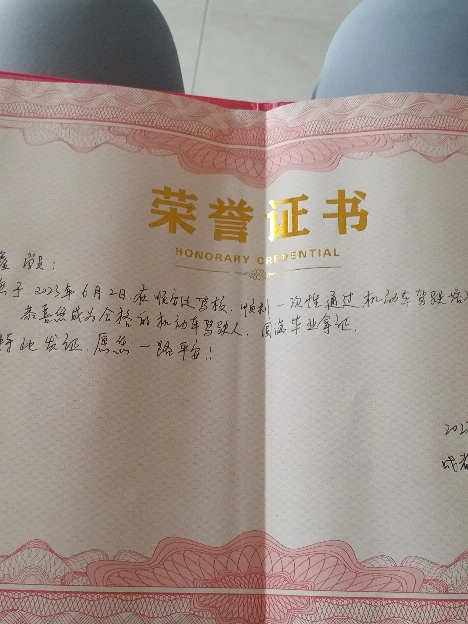 荣誉证书
HONORARY CREDENTIAL
鑫
于2023年6月2日在恒安驾校,顺利一次性通过机动车驾驶培
恭喜您成为合格的机动车驾驶人,圆满毕业拿证.
特此发证.愿您一路平安!
202
成都